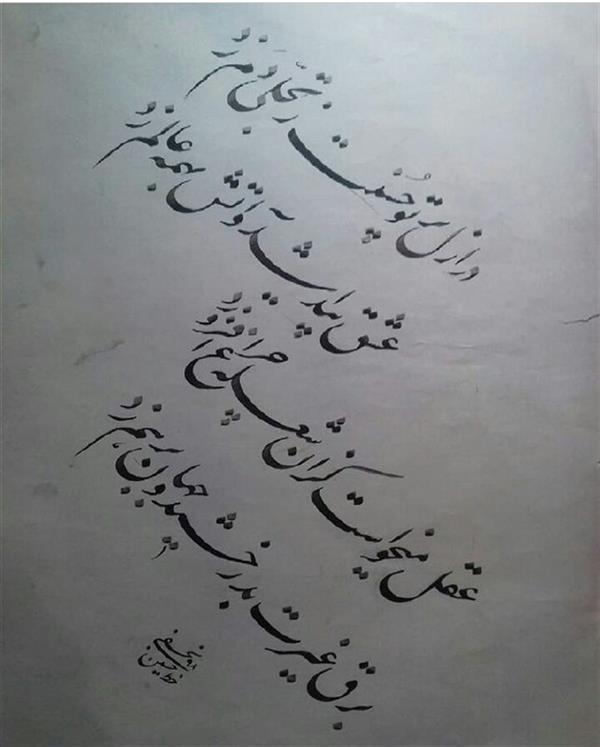 در ازل پرتو حُسنت ز تجلّی دم زد
عشق پیدا شد و آتش بهمه عالم زد
عقل میخواست کزان شعله چراغ افروزد
برق غیرت بدرخشید و جهان برهم زد